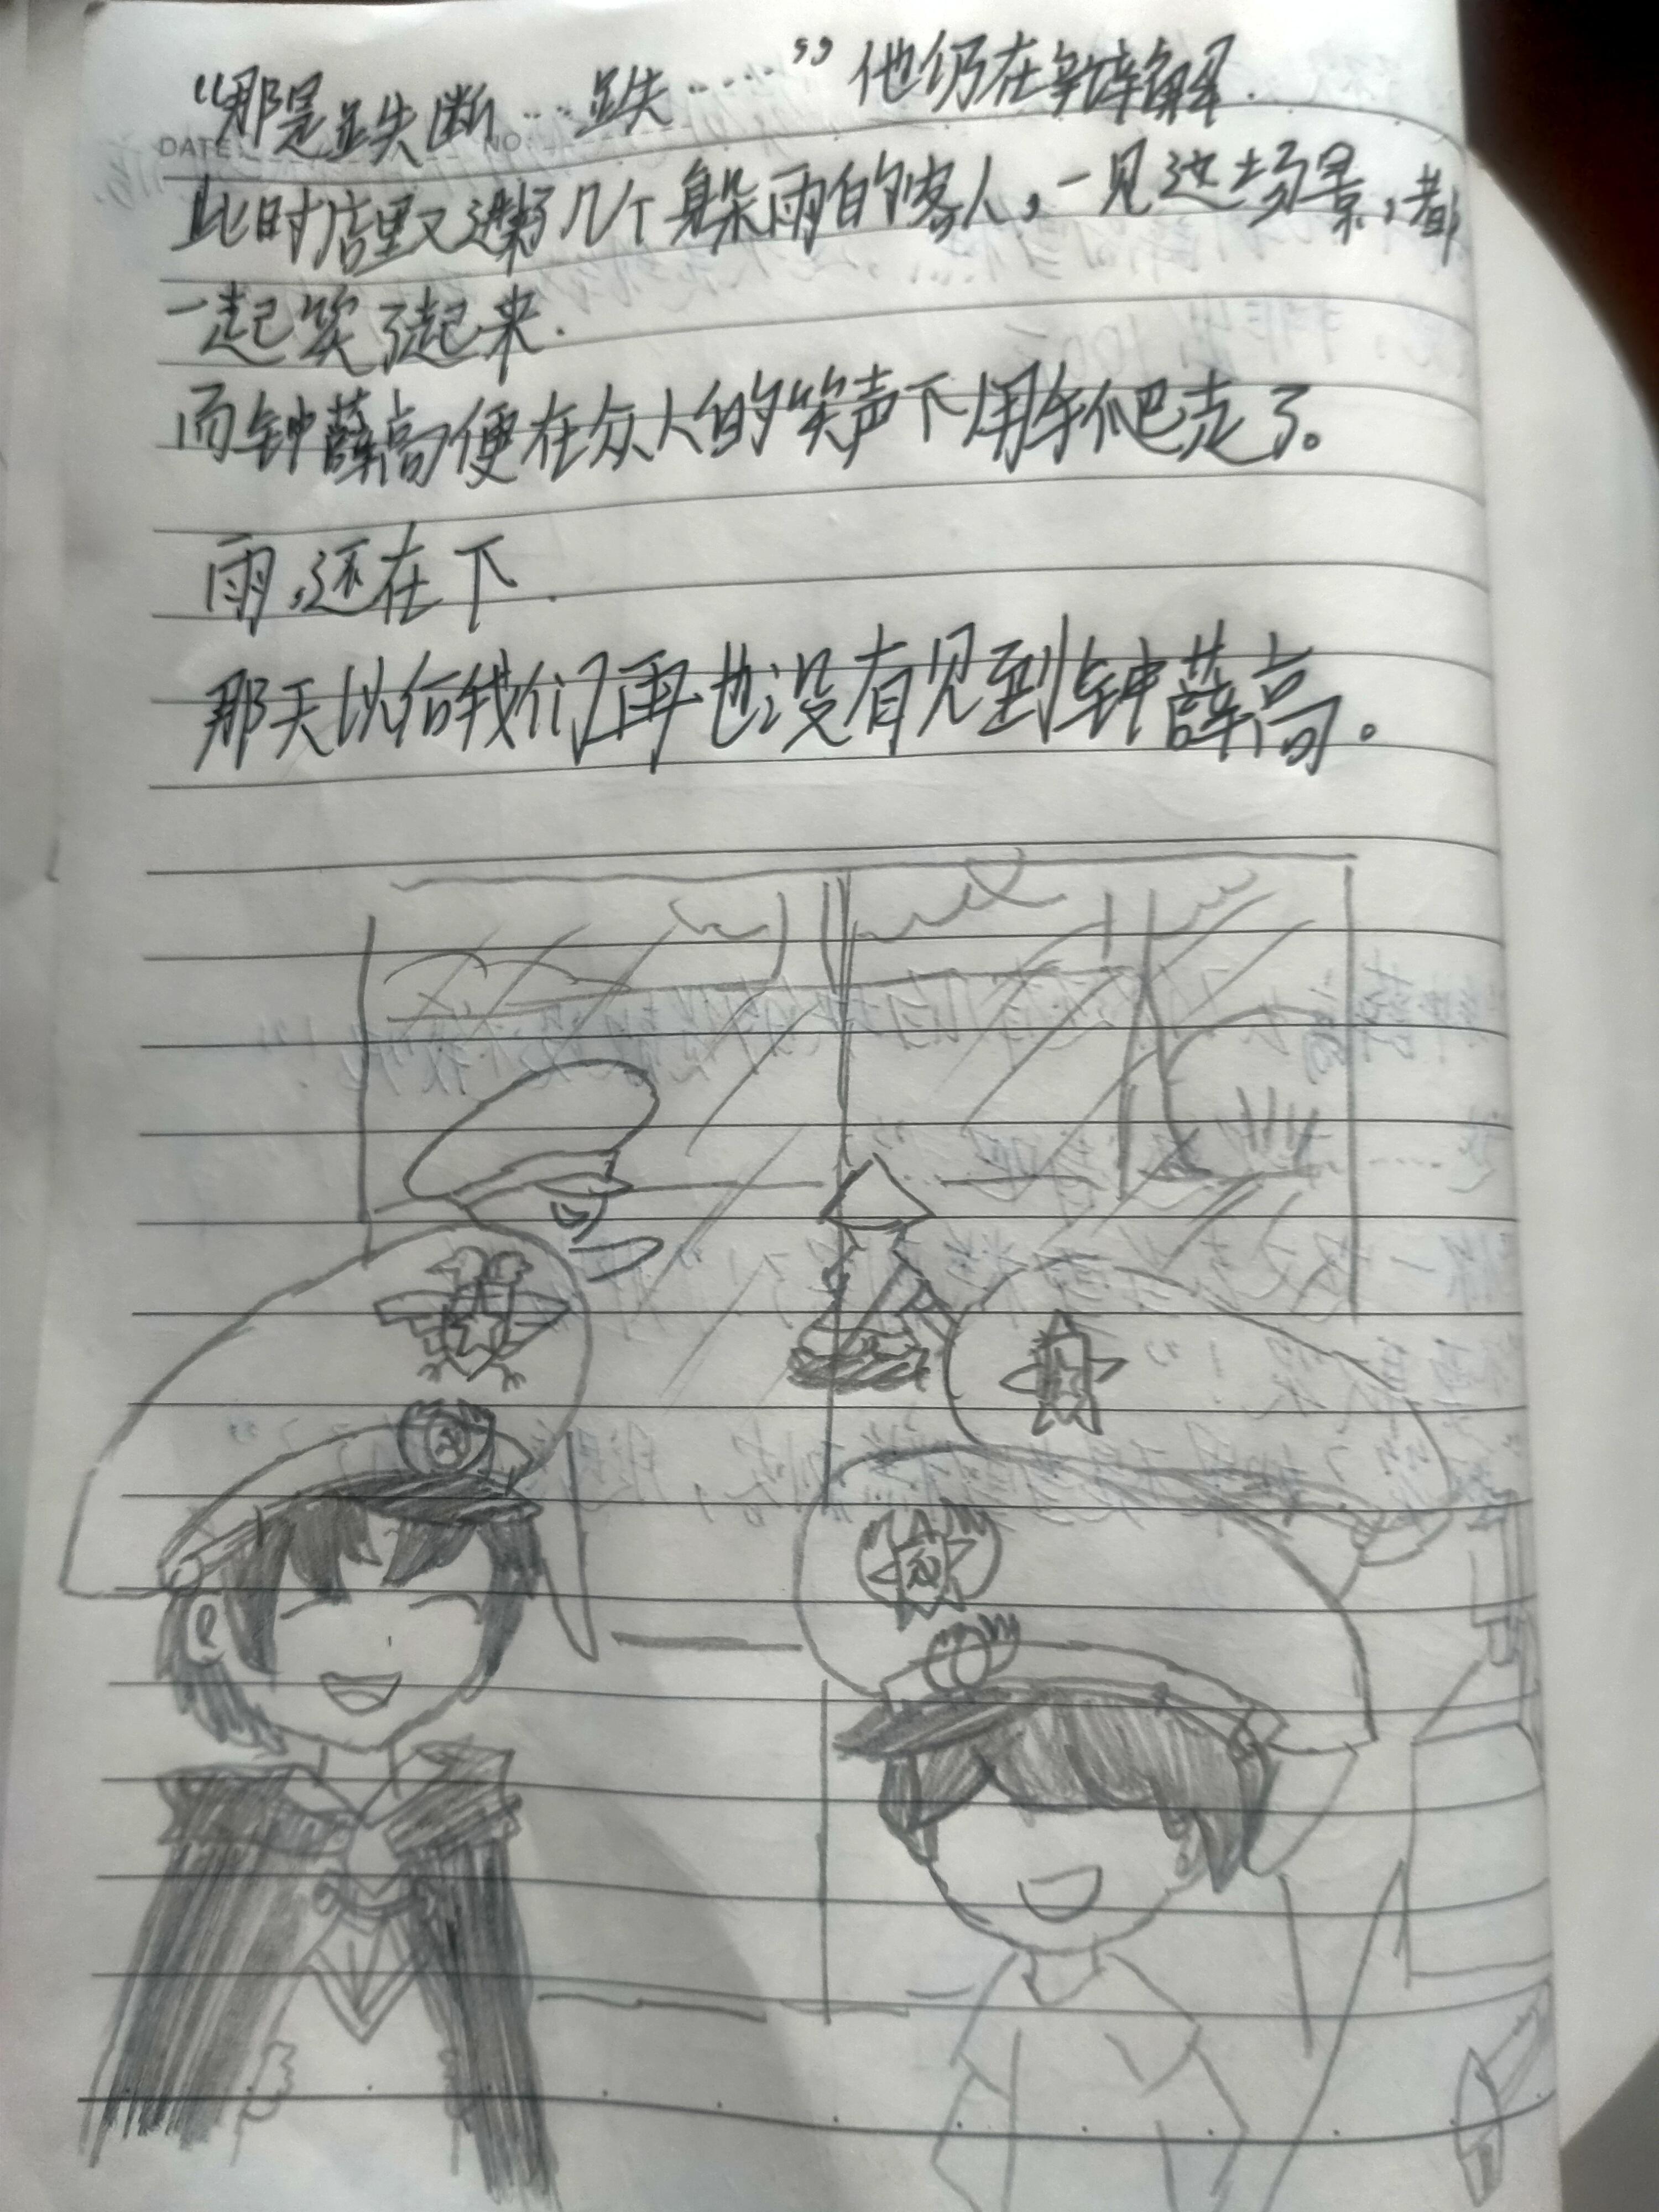 “那是跌断……跌……”他仍在辩解.
DATE: NO:
此时店里又进了几个躲雨的客人,一见这场景,都
一起笑了起来.
而钟薛高便在众人的笑声下用手爬走了。
雨,还在下.
那天以后我们再也没有见到钟薛高。